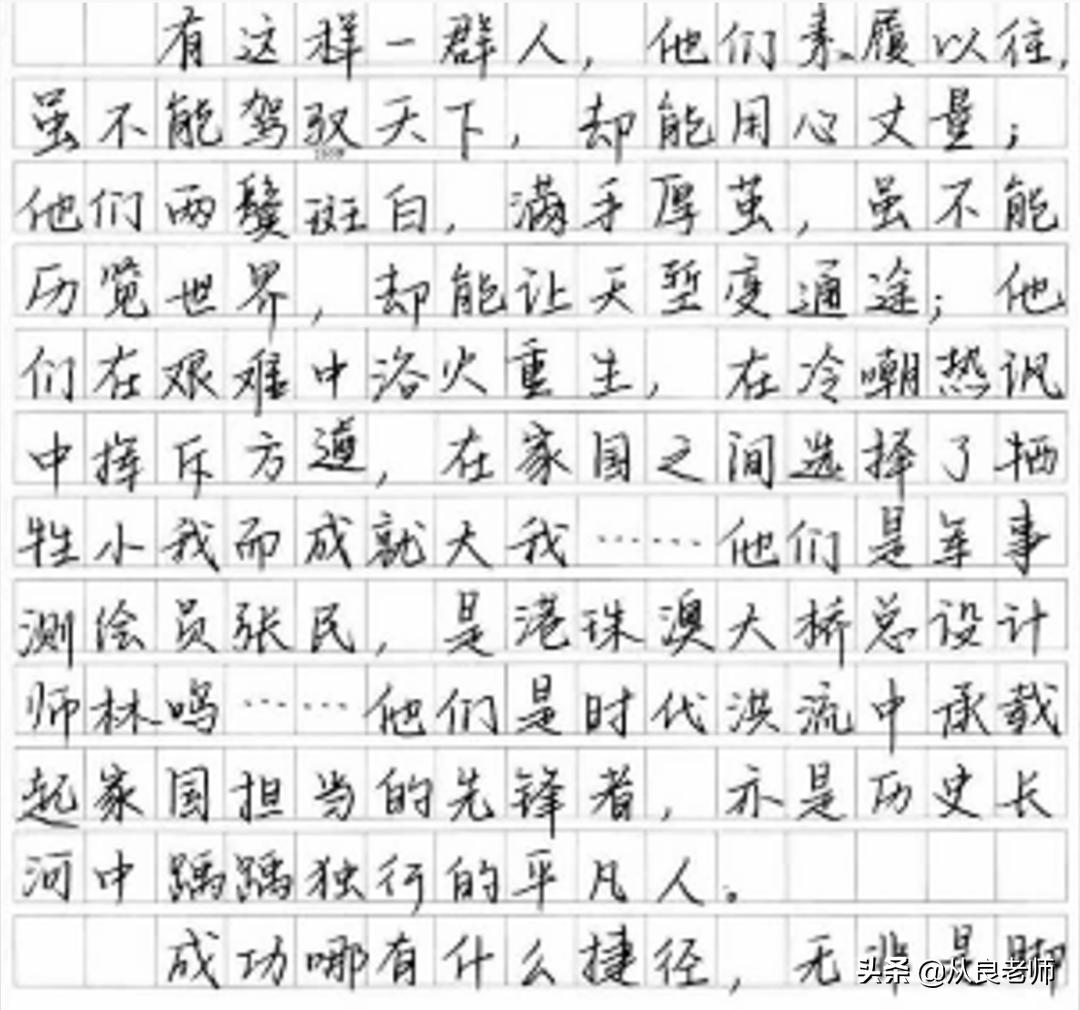 有这样一群人，他们素履以往，
虽不能驾驭天下，却能用心丈量；
他们两鬓斑白，满手厚茧，虽不能
历览世界，却能让天堑变通途；他
们在艰难中浴火重生，在冷嘲热讽
中挥斥方遒，在家国之间选择了牺
牲小我而成就大我……他们是军事
测绘员张民，是港珠澳大桥总设计
师林鸣……他们是时代洪流中承载
起家国担当的先锋者，亦是历史长
河中踽踽独行的平凡人。
成功哪有什么捷径，无非是脚
头条 @从良老师